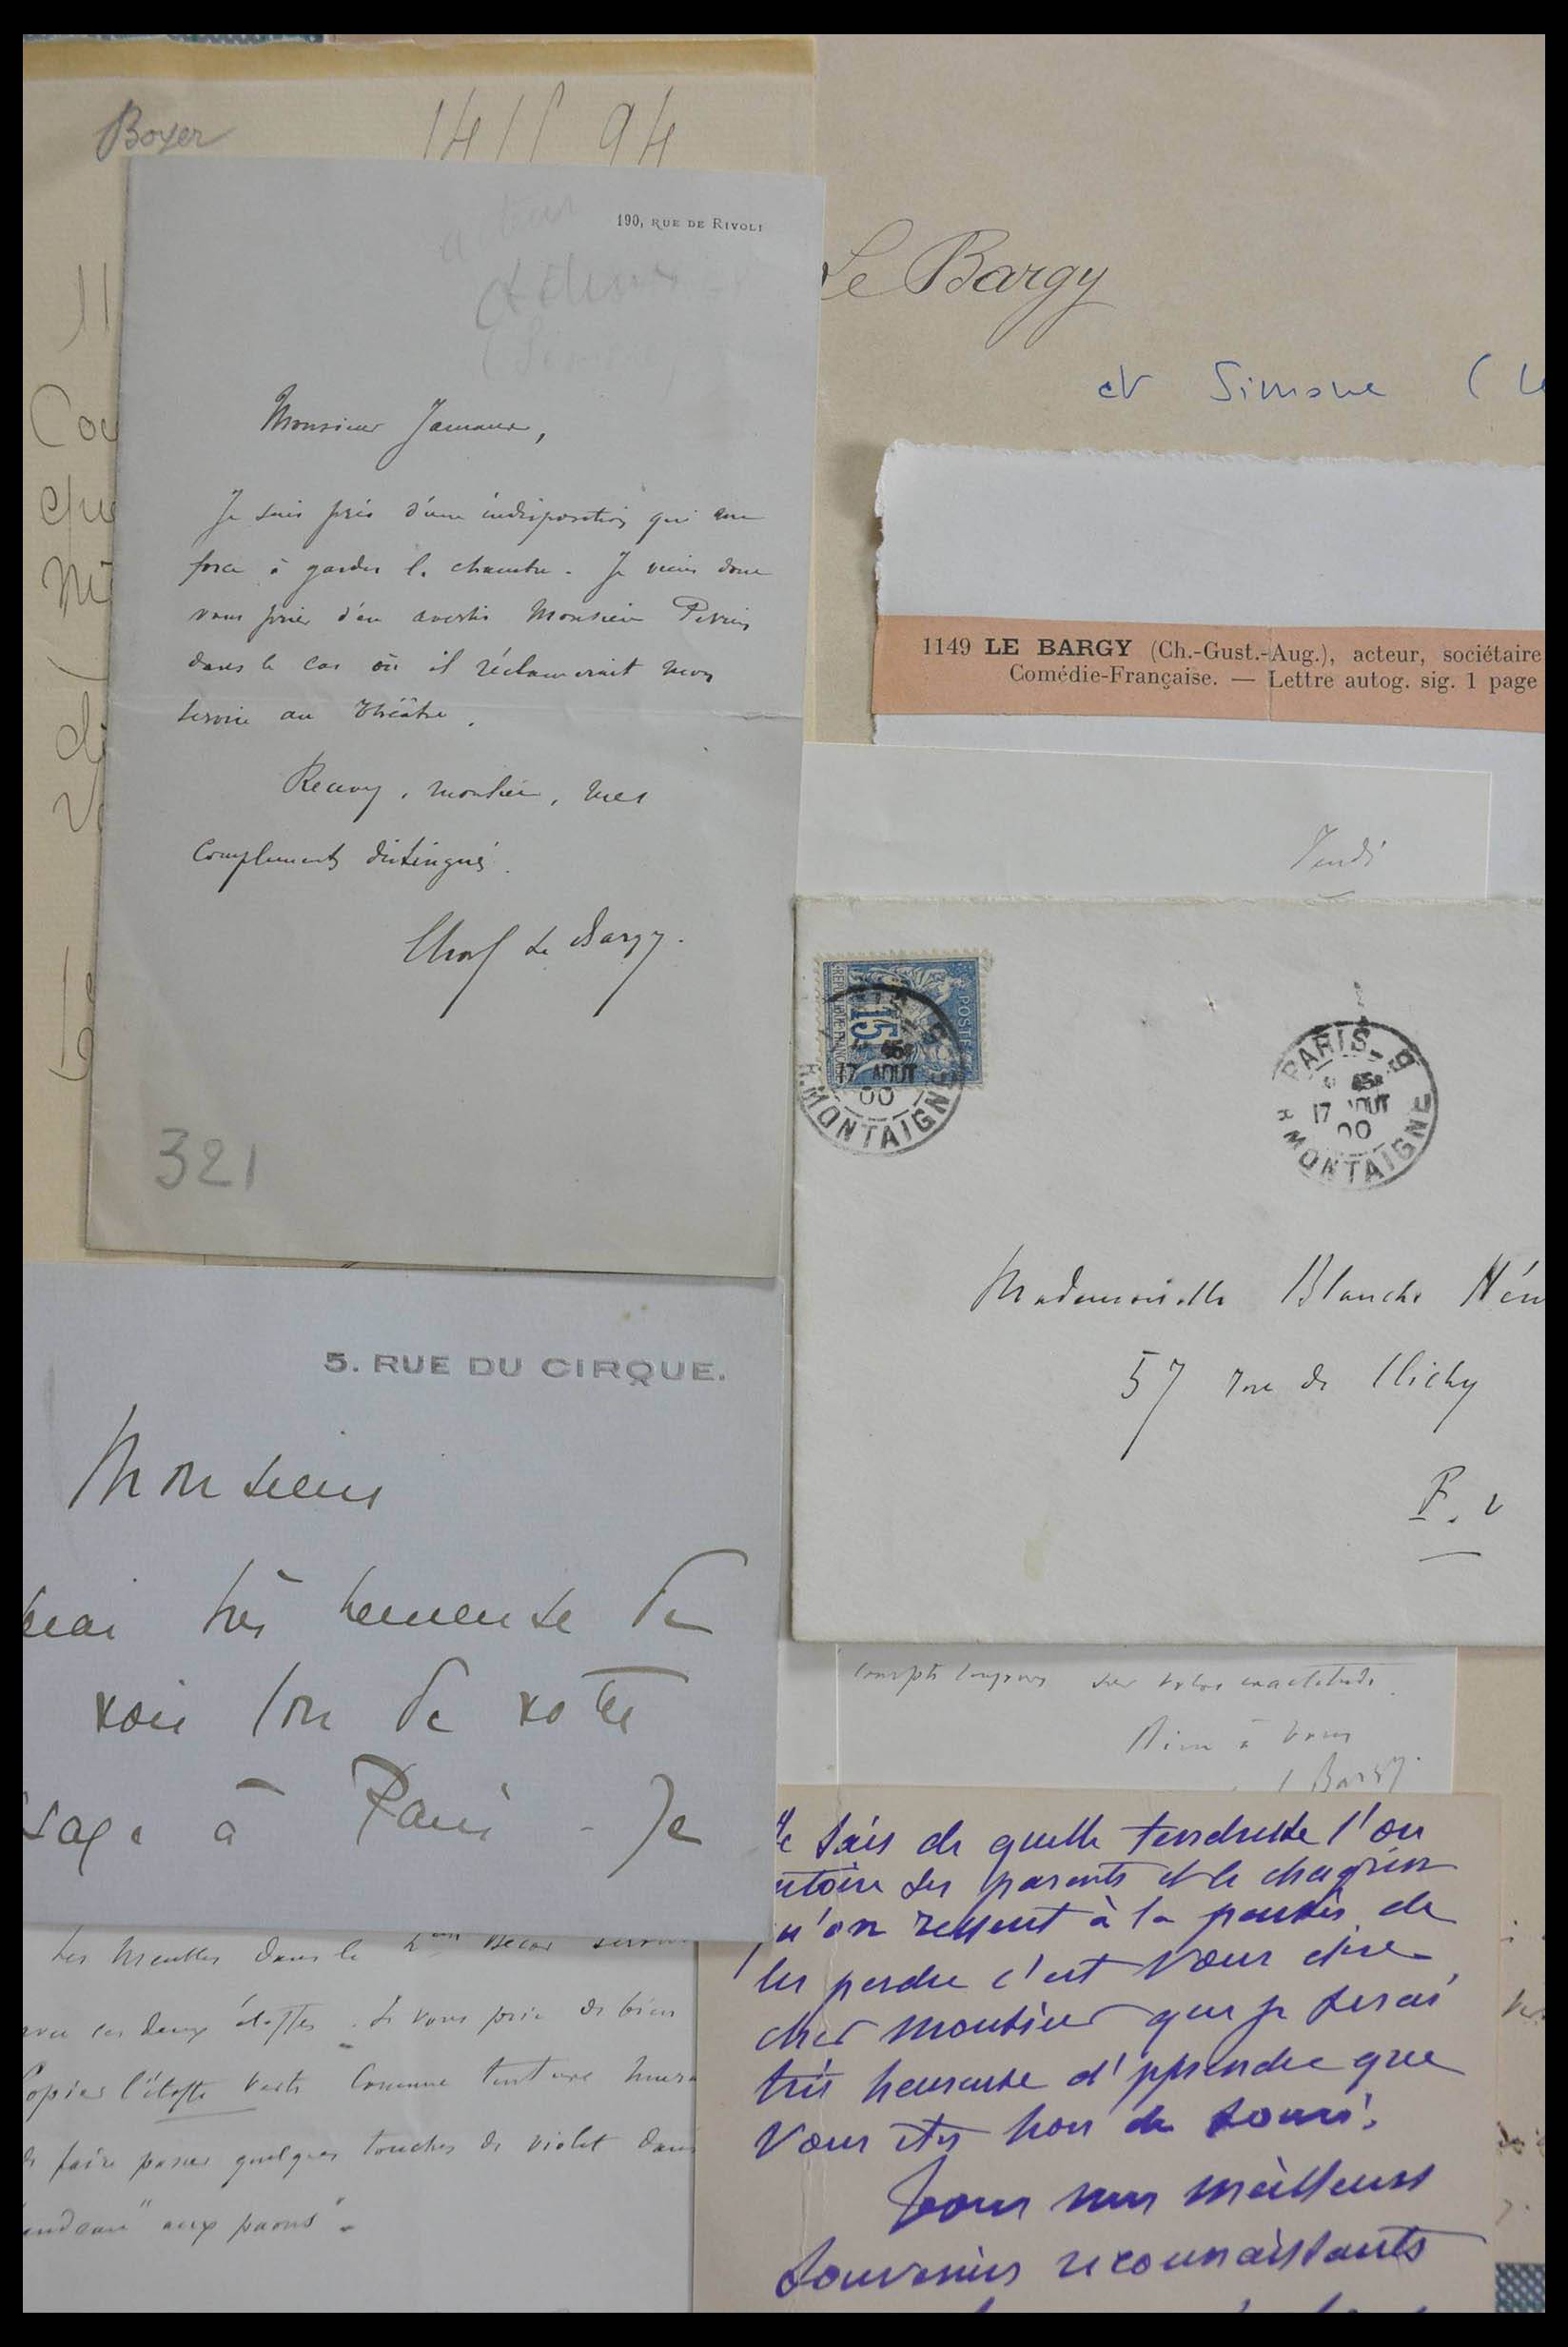 Boyer
14 94
11
Cou
que
190, RUE DE RIVOLI
Monsieur
Je suis pris d'une indisposition qui me
force à garder la chambre. Je viens donc
vous prier d'en avertir Monsieur Perrin
dans le cas où il réclamerait mon
service au Théâtre.
Recevez, monsieur, mes
compliments distingués.
Le Bargy.
321
Le Bargy
et Simone (
1149 LE BARGY (Ch.-Gust.-Aug.), acteur, sociétaire
Comédie-Française. — Lettre autog. sig. 1 page
POSTE
15
17 AOUT
00
R. MONTAIGNE
PARIS-9
17 AOUT
00
R MONTAIGNE
Mademoiselle Blanche
57 rue de Clichy
5. RUE DU CIRQUE.
Monsieur
très heureuse de
voir lors de votre
à Paris - Je
compte toujours sur votre exactitude.
Bien à vous
Bargy
sais de quelle tendresse l'on
entoure ses parents et le chagrin
qu'on ressent à la pensée de
les perdre c'est vous dire
cher monsieur que je serai
très heureuse d'pprendre que
vous êtes hors de souci.
Pour mes meilleurs
souvenirs reconnaissants
Les meubles dans le
ces deux étoffes. Je vous prie de bien
Copier l'étoffe verte comme tenture
de faire passer quelques touches de violet dans
aux paons".